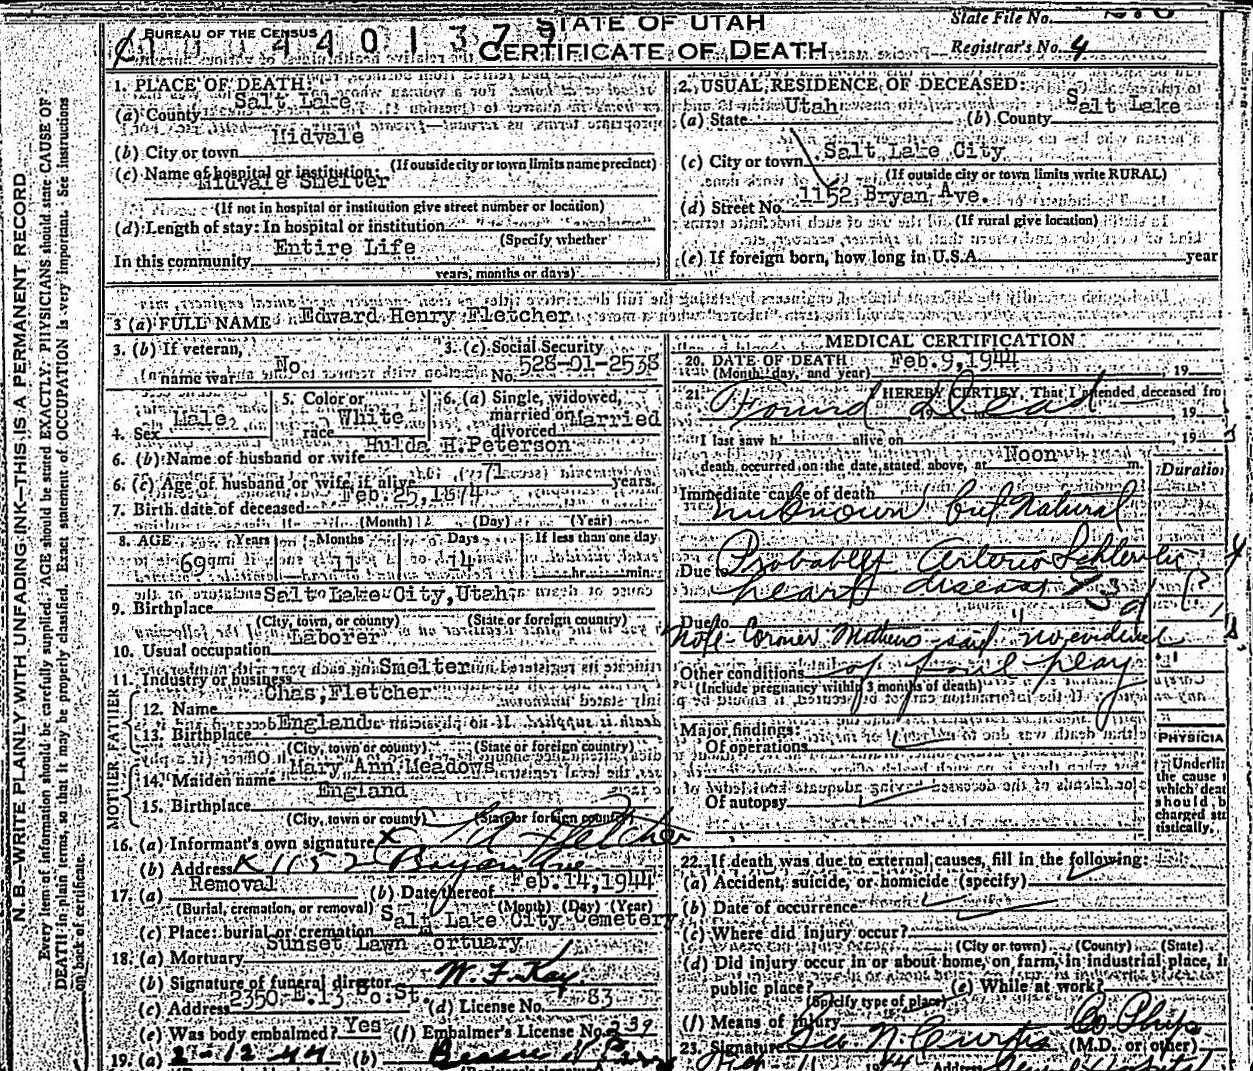 BUREAU OF THE CENSUS
4 4 0 1 3 7 9
STATE OF UTAH
CERTIFICATE OF DEATH
State File No.
Registrar's No. 4
N.B.—WRITE PLAINLY WITH UNFADING INK—THIS IS A PERMANENT RECORD
Every item of information should be carefully supplied. AGE should be stated EXACTLY. PHYSICIANS should state CAUSE OF
DEATH in plain terms, so that it may be properly classified. Exact statement of OCCUPATION is very important. See instructions
on back of certificate.
1. PLACE OF DEATH:
(a) County Salt Lake
(b) City or town Midvale
(If outside city or town limits name precinct)
(c) Name of hospital or institution:
Midvale Smelter
(If not in hospital or institution give street number or location)
(d) Length of stay: In hospital or institution
(Specify whether
In this community Entire Life
years, months or days)
2. USUAL RESIDENCE OF DECEASED:
(a) State Utah (b) County Salt Lake
(c) City or town Salt Lake City
(If outside city or town limits write RURAL)
(d) Street No. 1152 Bryan Ave.
(If rural give location)
(e) If foreign born, how long in U.S.A. year
3 (a) FULL NAME Edward Henry Fletcher
3. (b) If veteran, name war No.
3. (c) Social Security No. 528-01-2538
4. Sex Male
5. Color or race White
6. (a) Single, widowed, married or divorced Married
6. (b) Name of husband or wife Hulda H. Peterson
6. (c) Age of husband or wife, if alive 71 years.
7. Birth date of deceased Feb. 25, 1874
(Month) (Day) (Year)
8. AGE Years Months Days If less than one day
69 11 14 hr. min.
9. Birthplace Salt Lake City, Utah
(City, town, or county) (State or foreign country)
10. Usual occupation Laborer
11. Industry or business Smelter
FATHER
12. Name Chas. Fletcher
13. Birthplace England
(City, town or county) (State or foreign country)
MOTHER
14. Maiden name Mary Ann Meadows
15. Birthplace England
(City, town or county) (State or foreign country)
16. (a) Informant's own signature Fletcher
(b) Address 1152 Bryan Ave
17. (a) Removal (b) Date thereof Feb. 14, 1944
(Burial, cremation, or removal) (Month) (Day) (Year)
(c) Place: burial or cremation Salt Lake City Cemetery
18. (a) Mortuary Sunset Lawn Mortuary
(b) Signature of funeral director W. F. Kay
(c) Address 2350 E. 13 So. St. (d) License No. 83
(e) Was body embalmed? Yes (f) Embalmer's License No. 239
19. (a) 2-12-44 (b)
MEDICAL CERTIFICATION
20. DATE OF DEATH Feb. 9, 1944
(Month, day, and year) 19
21. I HEREBY CERTIFY, That I attended deceased fro
Found Dead
19
I last saw h alive on , 19
death occurred on the date stated above, at Noon m.
Duration
Immediate cause of death
unknown but Natural
Due to Probably Arterio Schlerotic
heart disease
Due to
Note - Corner Mathews said "no evidence
of foul play
Other conditions
(Include pregnancy within 3 months of death)
Major findings:
Of operations
Of autopsy
PHYSICIA
Underli
the cause t
which deat
should b
charged sta
tistically.
22. If death was due to external causes, fill in the following:
(a) Accident, suicide, or homicide (specify)
(b) Date of occurrence
(c) Where did injury occur?
(City or town) (County) (State)
(d) Did injury occur in or about home, on farm, in industrial place, in
public place? (e) While at work?
(Specify type of place)
(f) Means of injury
Co. Phys
23. Signature N. Curtis (M.D. or other)
Address